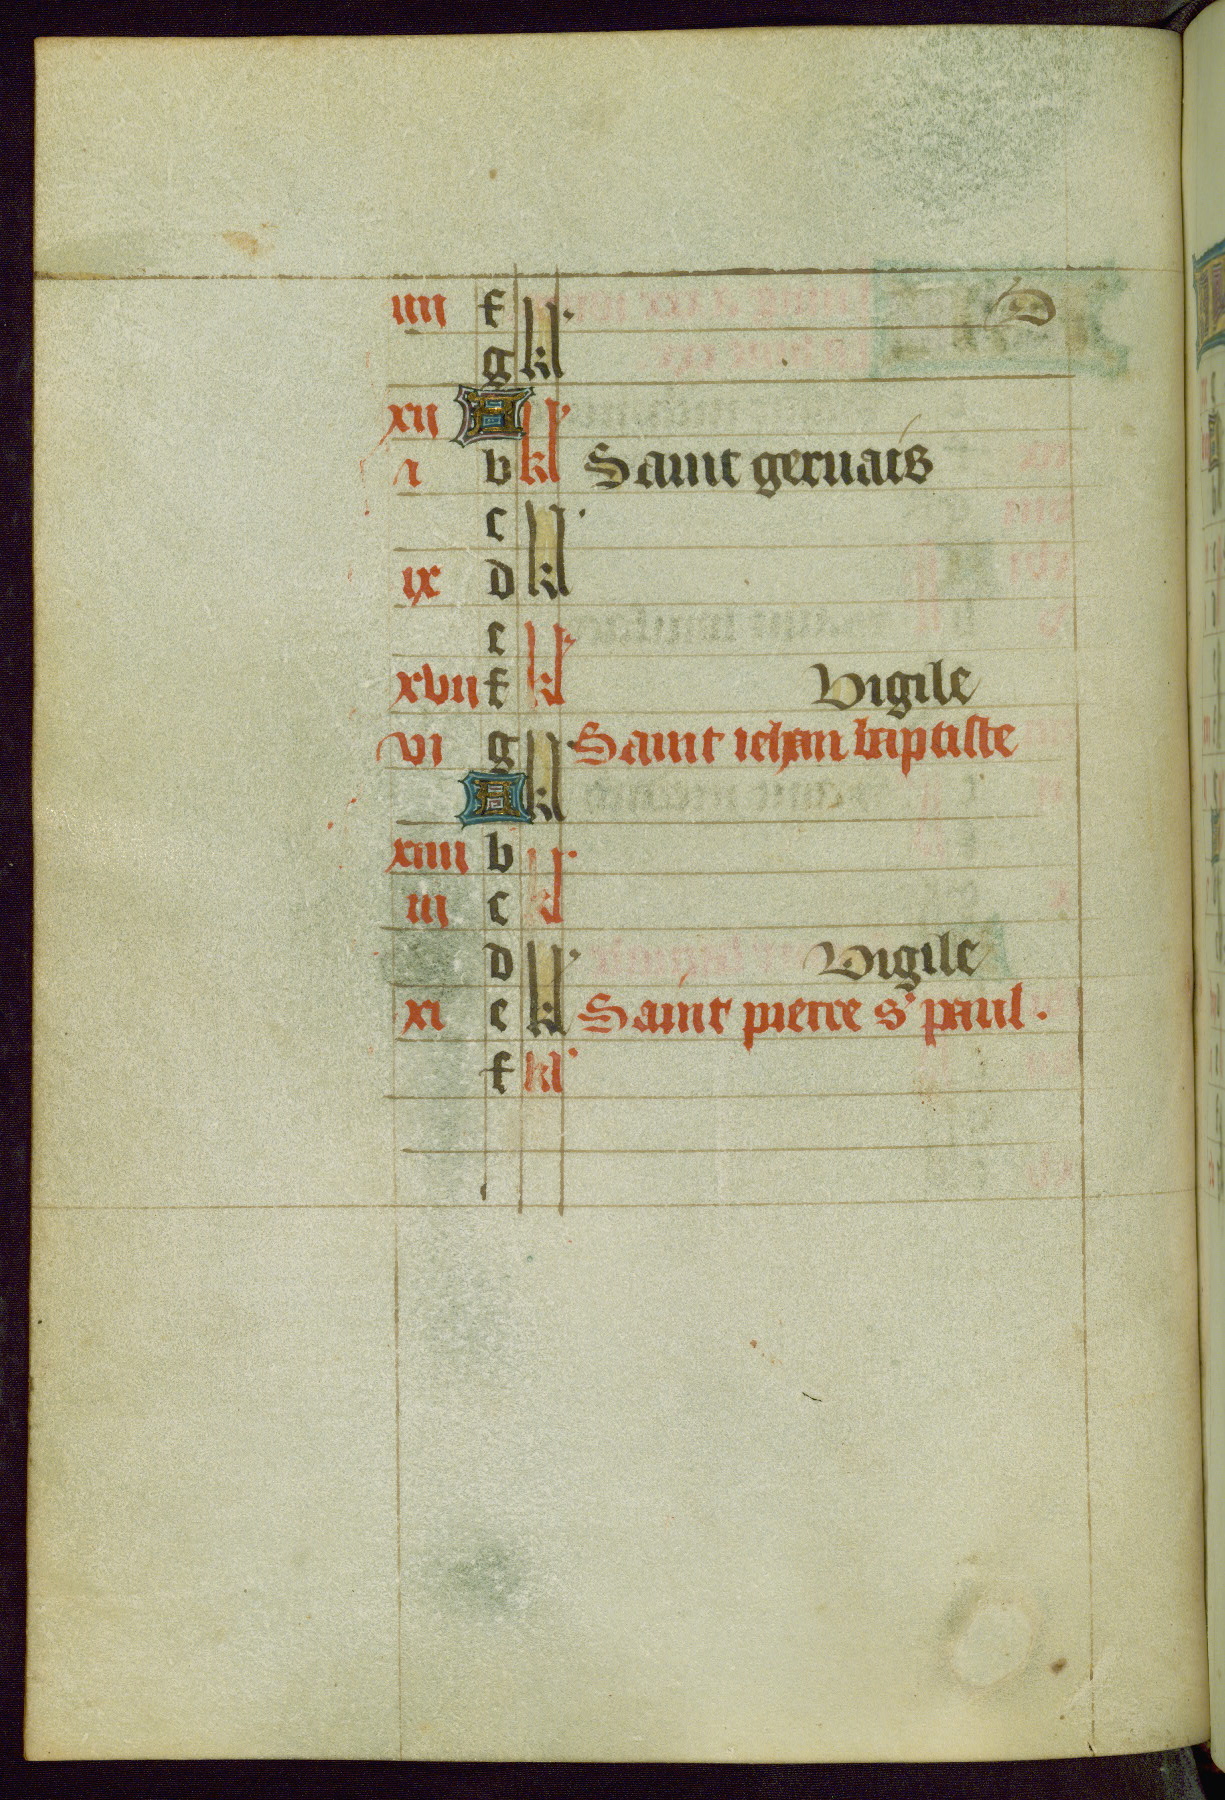 iiii f kl
g
xii A kl
i b Saint geruais
c kl
ix d
e kl
xvii f Vigile
vi g kl Saint iehan baptiste
A
xiiii b kl
iii c
d kl Vigile
xi e Saint pierre s paul.
f kl